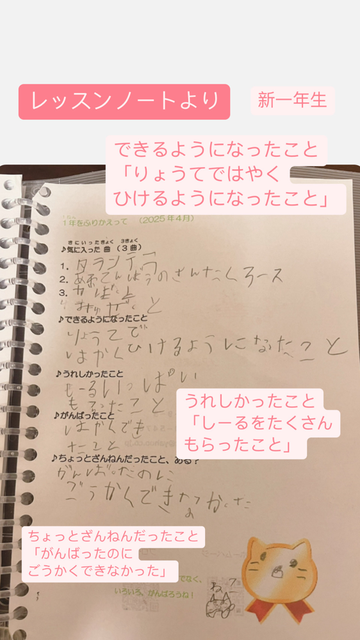 レッスンノートより
新一年生
できるようになったこと
「りょうてではやく
ひけるようになったこと」
1年をふりかえって (2025年4月)
♪気に入った曲（3曲）
1. タランテラ
2.
3.
♪できるようになったこと
りょうてで
はやくひけるようになたこと
♪うれしかったこと
しーるいっぱい
もらたこと
うれしかったこと
「しーるをたくさん
もらったこと」
♪がんばったこと
はやくでき
たこと
♪ちょっとざんねんだったこと、ある？
がんばったのに
ごうかくできなかった
ちょっとざんねんだったこと
「がんばったのに
ごうかくできなかった」
でなく、
いろいろ、がんばろうね！